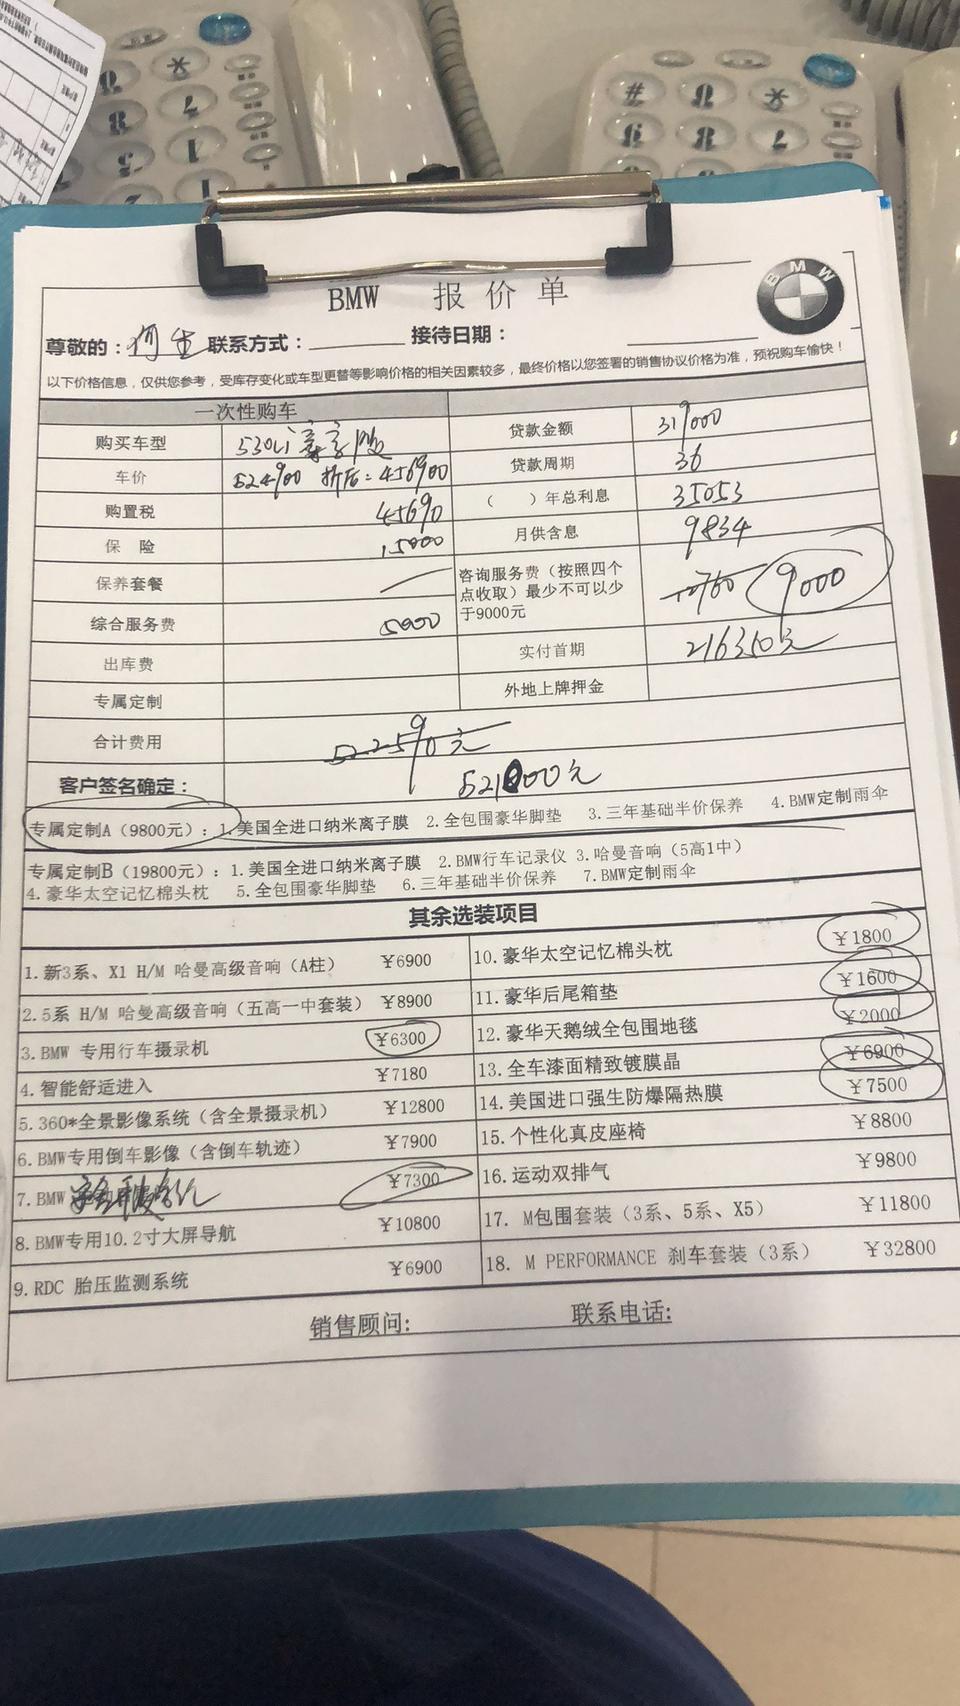 BMW 报价单
BMW
尊敬的：何生 联系方式： 接待日期：
以下价格信息，仅供您参考，受库存变化或车型更替等影响价格的相关因素较多，最终价格以您签署的销售协议价格为准，预祝购车愉快！
一次性购车
购买车型 530Li 豪华版 贷款金额 319000
车价 524900 折后：456900 贷款周期 36
购置税 45690 （ ）年总利息 35053
保 险 15000 月供含息 9834
保养套餐 咨询服务费（按照四个点收取）最少不可以少于9000元 12760 9000
综合服务费 5000 实付首期 216350元
出库费
专属定制 外地上牌押金
合计费用 522590元
521000元
客户签名确定：
专属定制A（9800元）：1.美国全进口纳米离子膜 2.全包围豪华脚垫 3.三年基础半价保养 4.BMW定制雨伞
专属定制B（19800元）：1.美国全进口纳米离子膜 2.BMW行车记录仪 3.哈曼音响（5高1中）
4.豪华太空记忆棉头枕 5.全包围豪华脚垫 6.三年基础半价保养 7.BMW定制雨伞
其余选装项目
1.新3系、X1 H/M 哈曼高级音响（A柱） ￥6900 10.豪华太空记忆棉头枕 ￥1800
2.5系 H/M 哈曼高级音响（五高一中套装） ￥8900 11.豪华后尾箱垫 ￥1600
3.BMW 专用行车摄录机 ￥6300 12.豪华天鹅绒全包围地毯 ￥2000
4.智能舒适进入 ￥7180 13.全车漆面精致镀膜晶 ￥6900
5.360*全景影像系统（含全景摄录机） ￥12800 14.美国进口强生防爆隔热膜 ￥7500
6.BMW专用倒车影像（含倒车轨迹） ￥7900 15.个性化真皮座椅 ￥8800
7.BMW ￥7300 16.运动双排气 ￥9800
8.BMW专用10.2寸大屏导航 ￥10800 17. M包围套装（3系、5系、X5） ￥11800
9.RDC 胎压监测系统 ￥6900 18. M PERFORMANCE 刹车套装（3系） ￥32800
销售顾问: 联系电话: